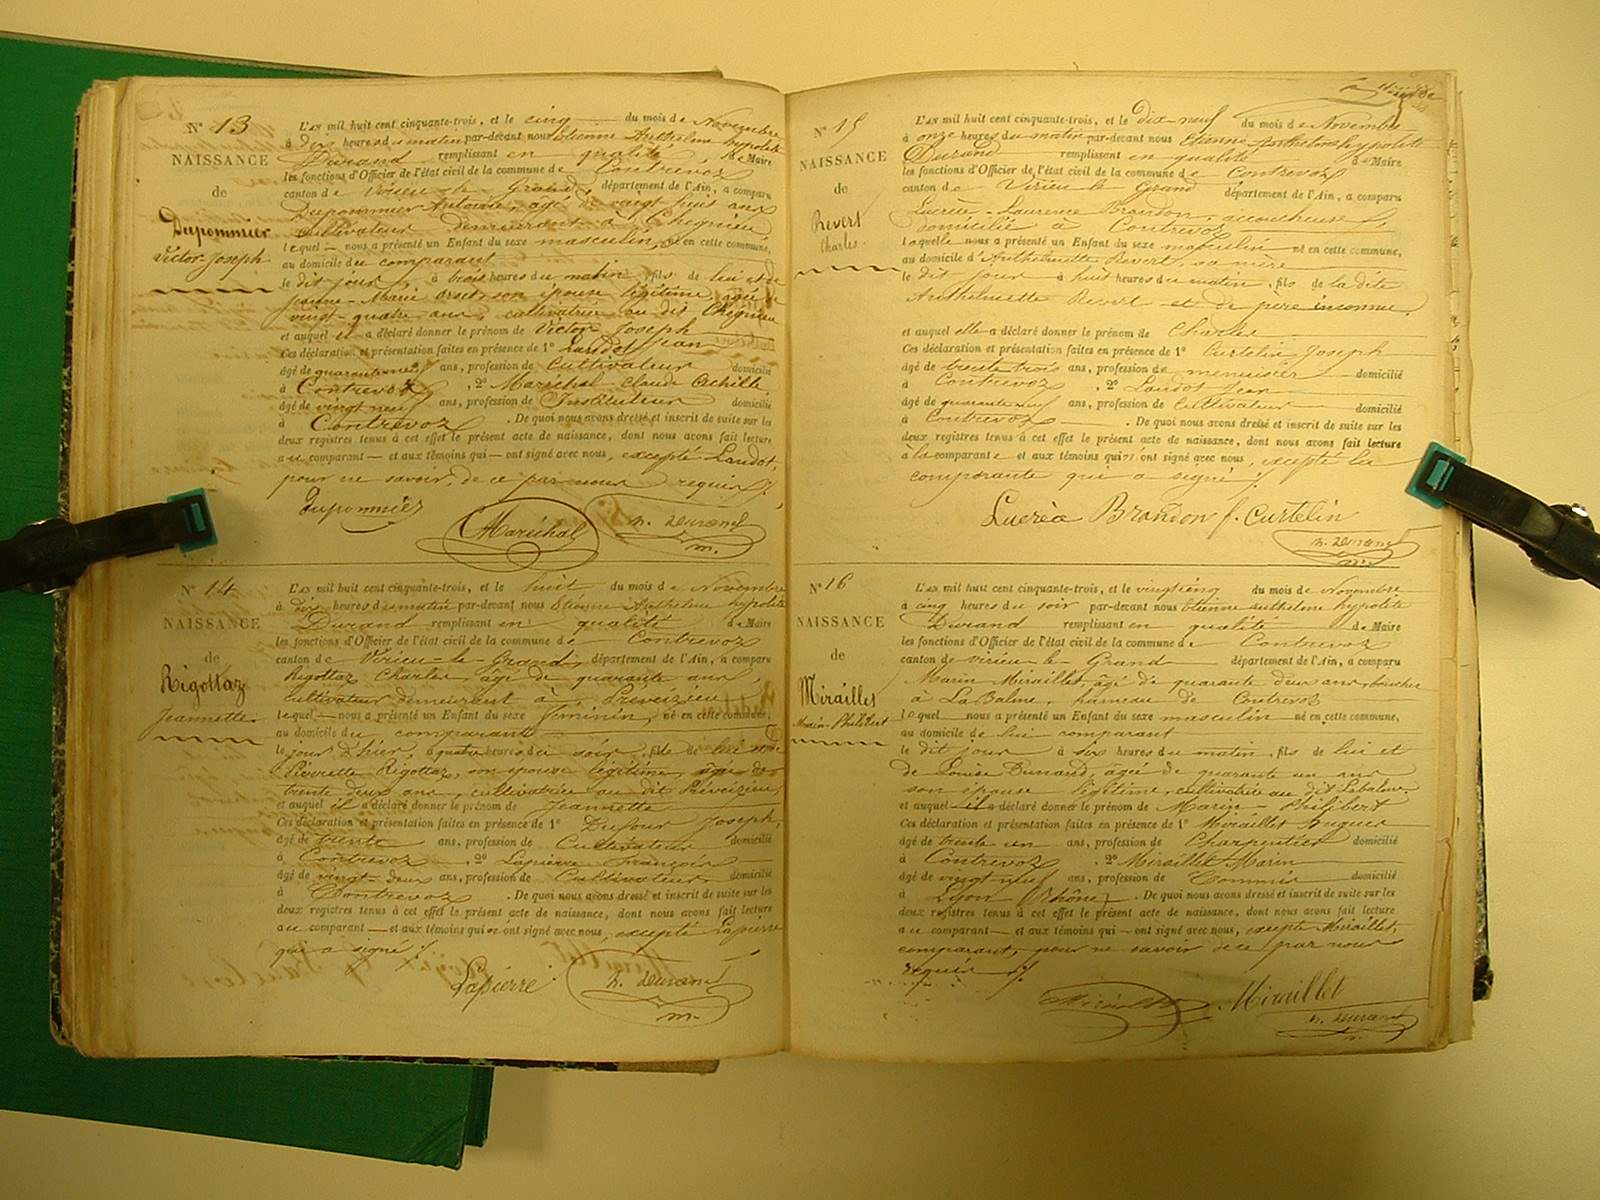 N° 13
NAISSANCE
de
Dupommier
Victor-Joseph
L'AN mil huit cent cinquante-trois, et le cinq du mois de Novembre
à dix heures du matin par-devant nous Etienne Anthelme hypolite
Durand remplissant en qualité de Maire
les fonctions d'Officier de l'état civil de la commune de Contrevoz
canton de Virieu-le-Grand, département de l'Ain, a comparu
Dupommier Antoine, âgé de vingt huit ans
cultivateur demeurant à Chegnieu
lequel nous a présenté un Enfant du sexe masculin, né en cette commune,
au domicile du comparant
le dit jour, à trois heures du matin, fils de lui et de
Jeanne-Marie son épouse légitime, âgée de
vingt-quatre ans, cultivatrice au dit Chegnieu
et auquel il a déclaré donner le prénom de Victor Joseph
Ces déclaration et présentation faites en présence de 1° Laudot Jean
âgé de quarante neuf ans, profession de Cultivateur domicilié
à Contrevoz, 2° Maréchal Claude Achille
âgé de vingt neuf ans, profession de Instituteur domicilié
à Contrevoz. De quoi nous avons dressé et inscrit de suite sur les
deux registres tenus à cet effet le présent acte de naissance, dont nous avons fait lecture
au comparant et aux témoins qui ont signé avec nous, excepté Laudot,
pour ne savoir, de ce par nous requis ./.
Dupommier Maréchal h. Durand
m.
N° 14
NAISSANCE
de
Rigottaz
Jeannette
L'AN mil huit cent cinquante-trois, et le huit du mois de Novembre
à dix heures du matin par-devant nous Etienne Anthelme hypolite
Durand remplissant en qualité de Maire
les fonctions d'Officier de l'état civil de la commune de Contrevoz
canton de Virieu-le-Grand, département de l'Ain, a comparu
Rigottaz Charles, âgé de quarante ans,
cultivateur demeurant à Préveizieu
lequel nous a présenté un Enfant du sexe féminin, né en cette commune,
au domicile du comparant
le jour d'hier, à quatre heures du soir, fille de lui et de
Pierrette Rigottaz, son épouse légitime, âgée de
trente deux ans, cultivatrice au dit Préveizieu
et auquel il a déclaré donner le prénom de Jeannette
Ces déclaration et présentation faites en présence de 1° Dufour Joseph,
âgé de trente ans, profession de Cultivateur domicilié
à Contrevoz, 2° Lapierre François
âgé de vingt-deux ans, profession de Cultivateur domicilié
à Contrevoz. De quoi nous avons dressé et inscrit de suite sur les
deux registres tenus à cet effet le présent acte de naissance, dont nous avons fait lecture
au comparant et aux témoins qui ont signé avec nous, excepté Lapierre
qui a signé ./.
Lapierre h. Durand
m.
N° 15
NAISSANCE
de
Revert
Charles
L'AN mil huit cent cinquante-trois, et le dix-neuf du mois de Novembre
à onze heures du matin par-devant nous Etienne Anthelme hypolite
Durand remplissant en qualité de Maire
les fonctions d'Officier de l'état civil de la commune de Contrevoz
canton de Virieu le Grand département de l'Ain, a comparu
Lucrèce-Laurence Brandon, accoucheuse
domiciliée à Contrevoz
laquelle nous a présenté un Enfant du sexe masculin né en cette commune,
au domicile d'Anthelmette Revert, sa mère
le dit jour à huit heures du matin, fils de la dite
Anthelmette Revert et de père inconnu.
et auquel elle a déclaré donner le prénom de Charles
Ces déclaration et présentation faites en présence de 1° Curtelin Joseph
âgé de trente trois ans, profession de menuisier domicilié
à Contrevoz, 2° Laudot Jean
âgé de quarante neuf ans, profession de Cultivateur domicilié
à Contrevoz. De quoi nous avons dressé et inscrit de suite sur les
deux registres tenus à cet effet le présent acte de naissance, dont nous avons fait lecture
à la comparante et aux témoins qui n'ont signé avec nous, excepté la
comparante qui a signé ./.
Lucrèce Brandon J. Curtelin
h. Durand
m.
N° 16
NAISSANCE
de
Miraillet
Marin-Philibert
L'AN mil huit cent cinquante-trois, et le vingt cinq du mois de Novembre
à cinq heures du soir par-devant nous Etienne Anthelme hypolite
Durand remplissant en qualité de Maire
les fonctions d'Officier de l'état civil de la commune de Contrevoz
canton de Virieu-le-Grand département de l'Ain, a comparu
Marin Miraillet, âgé de quarante deux ans, boucher
à La Balme, hameau de Contrevoz
lequel nous a présenté un Enfant du sexe masculin né en cette commune,
au domicile de lui comparant
le dit jour à six heures du matin, fils de lui et
de Louise Durand, âgée de quarante un ans
son épouse légitime, cultivatrice au dit Labalme
et auquel il a déclaré donner le prénom de Marin-Philibert
Ces déclaration et présentation faites en présence de 1° Miraillet
âgé de trente un ans, profession de Charpentier domicilié
à Contrevoz, 2° Miraillet Marin
âgé de vingt neuf ans, profession de Commis domicilié
à Lyon (Rhône). De quoi nous avons dressé et inscrit de suite sur les
deux registres tenus à cet effet le présent acte de naissance, dont nous avons fait lecture
au comparant et aux témoins qui ont signé avec nous, excepté Miraillet,
comparant, pour ne savoir de ce par nous
requis ./.
Miraillet Miraillet
h. Durand
m.